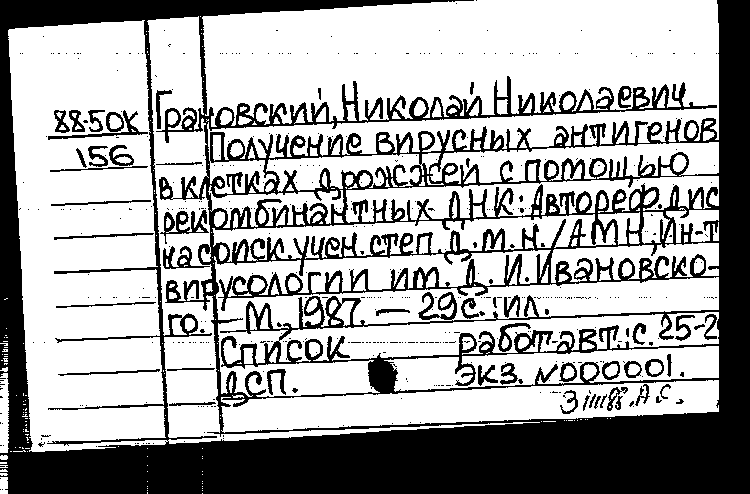 88-50К
156
Грановский, Николай Николаевич.
Получение вирусных антигенов
в клетках дрожжей с помощью
рекомбинантных ДНК: Автореф. дис
на соиск. учен. степ. Д.м.н. / АМН, Ин-т
вирусологии им. Д. И. Ивановско-
го. — М., 1987. — 29с.: ил.
Список работ авт.: с. 25-2
ДСП. экз. N000001.